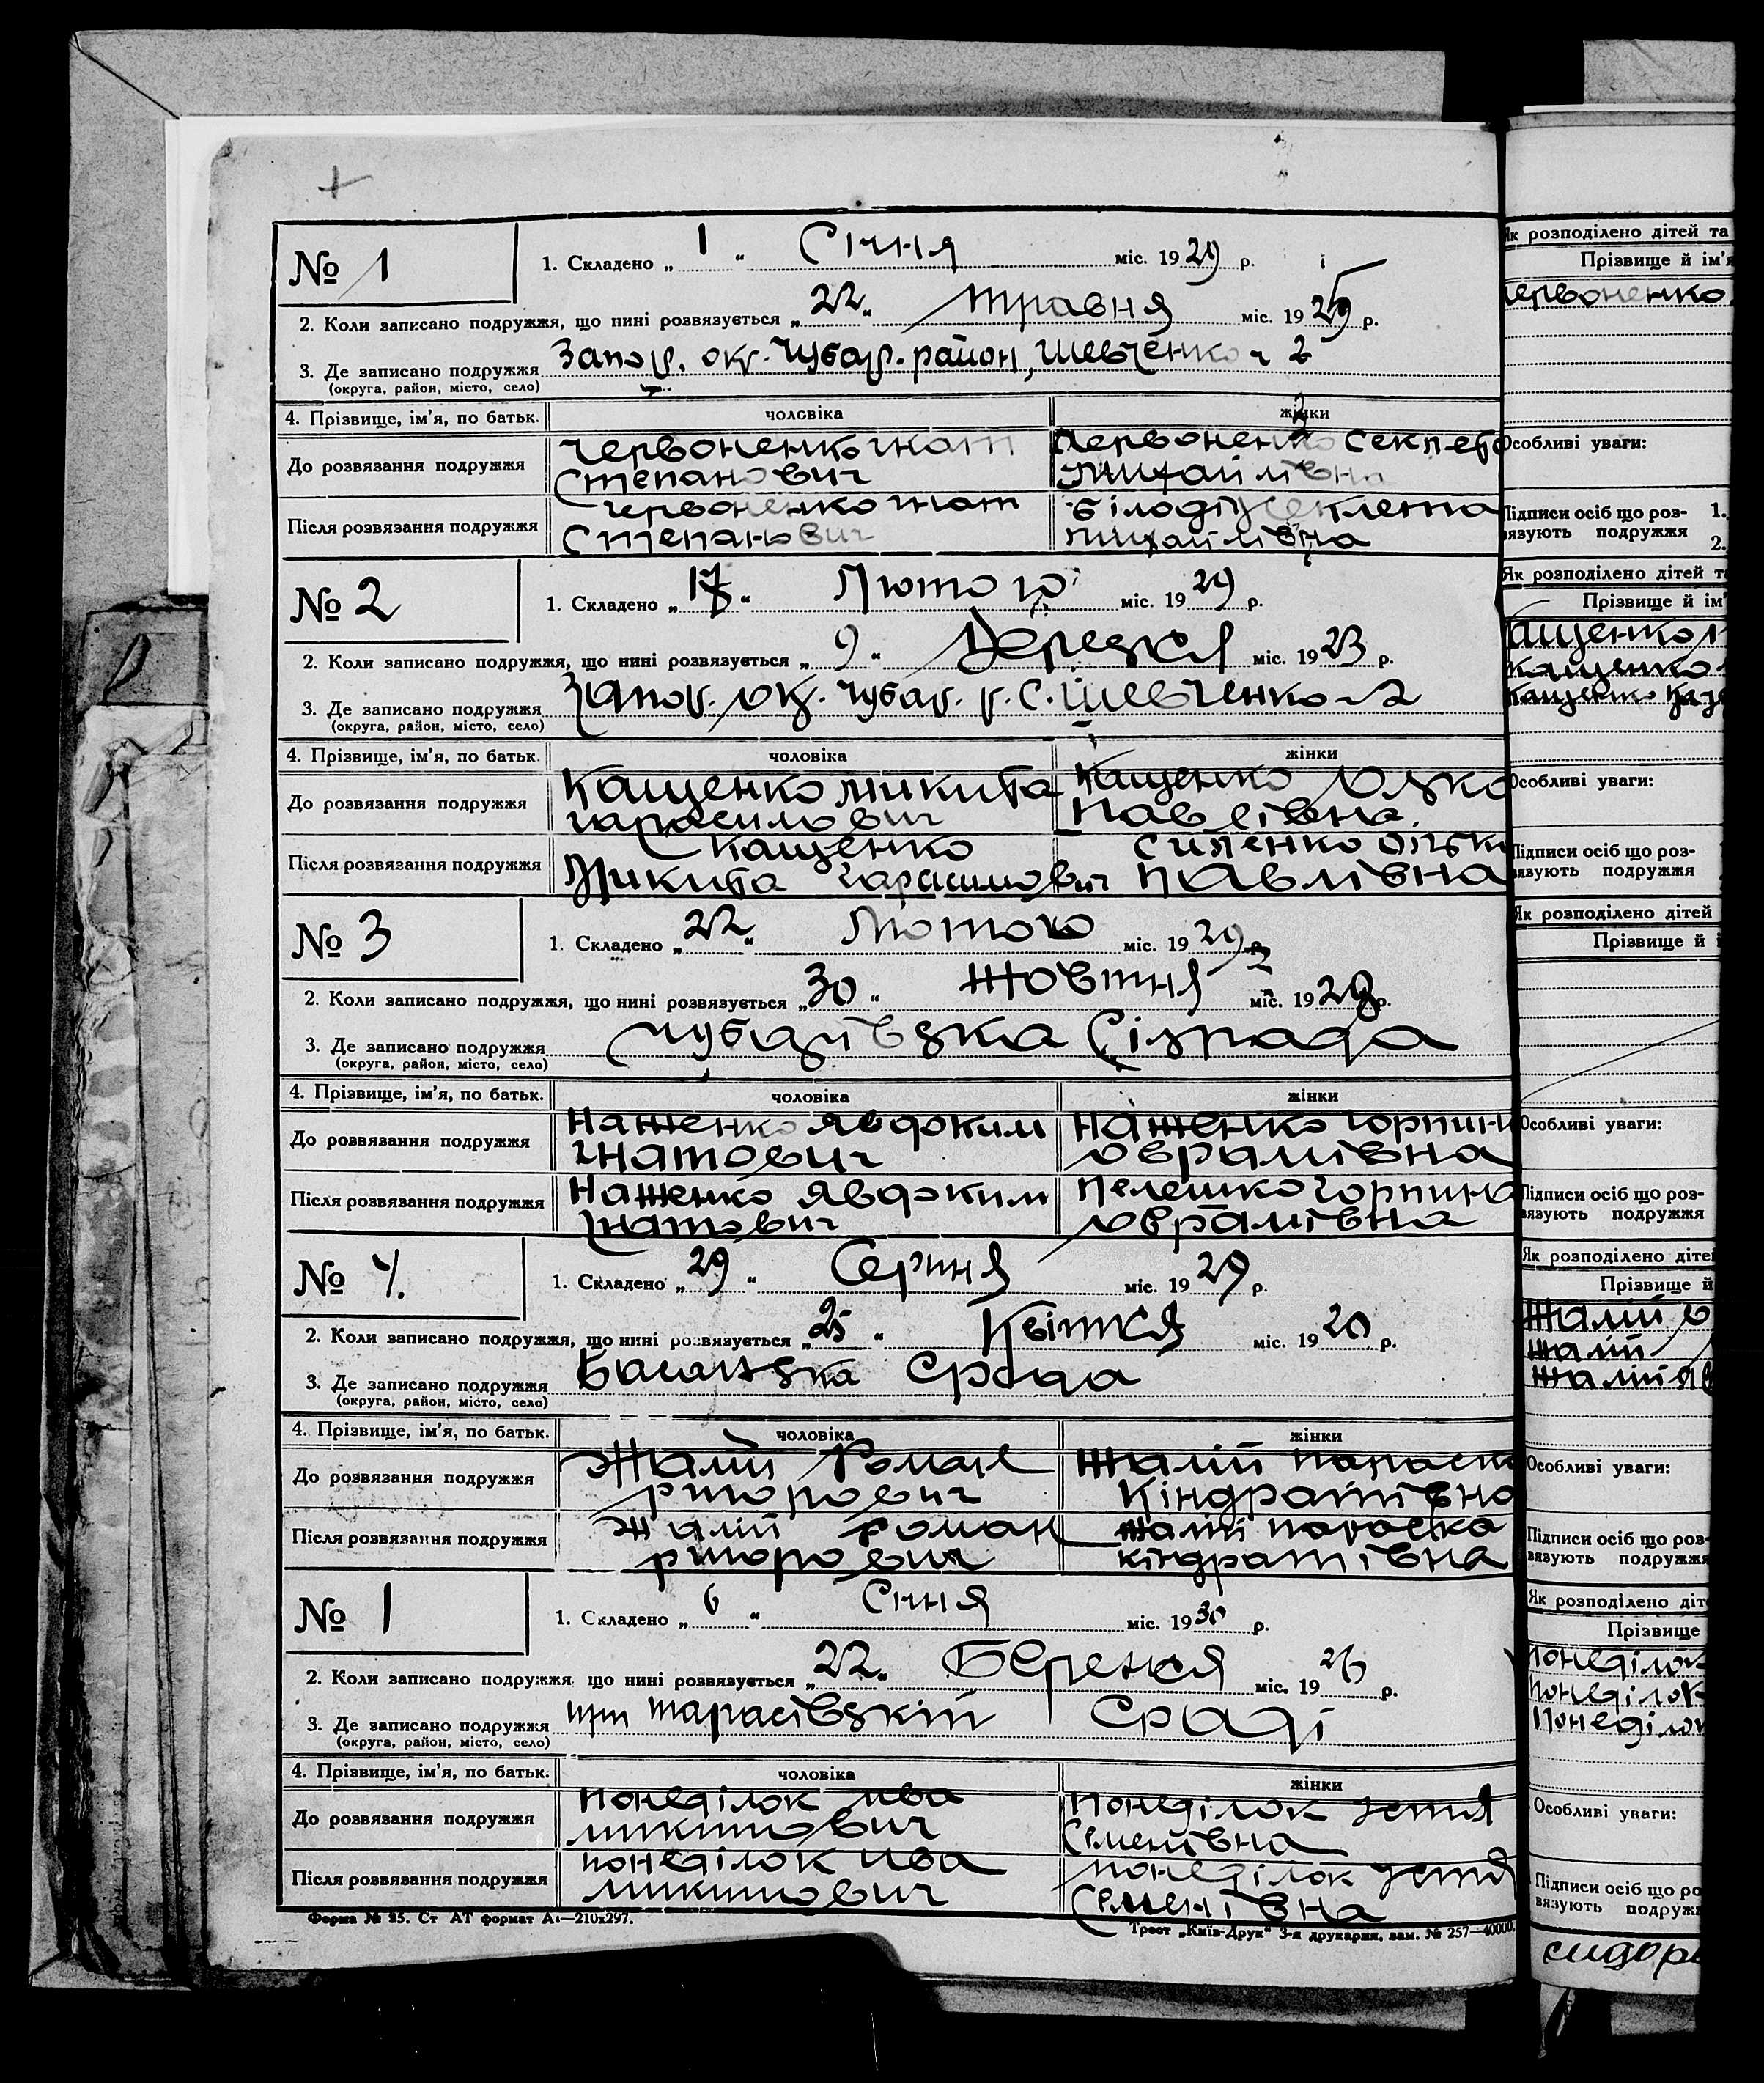 № 1
1. Складено „ 1 “ Січня міс. 1929 р.
2. Коли записано подружжя, що нині розвязується „ 22 “ травня міс. 19 р.
3. Де записано подружжя Запор. окр. Чубар. район, Шевченко ч 2
(округа, район, місто, село)
4. Прізвище, ім'я, по батьк. чоловіка жінки
До розвязання подружжя Червоненко гнат Червоненко Секлета
Степанович Михайлівна
Після розвязання подружжя Червоненко гнат Секлета
Степанович Михайлівна
№ 2
1. Складено „ “ Лютого міс. 1929 р.
2. Коли записано подружжя, що нині розвязується „ 9 “ міс. 1923 р.
3. Де записано подружжя Запор. окр. Чубар. р. С. Шевченко 2
(округа, район, місто, село)
4. Прізвище, ім'я, по батьк. чоловіка жінки
До розвязання подружжя Кащенко Микита Кащенко
гарасимович Павлівна.
Після розвязання подружжя Кащенко Силенко
Микита гарасимович Павлівна
№ 3
1. Складено „ 22 “ Лютого міс. 1929 р.
2. Коли записано подружжя, що нині розвязується „ 30 “ Жовтня міс. 1928 р.
3. Де записано подружжя Чубарівска Сілрада
(округа, район, місто, село)
4. Прізвище, ім'я, по батьк. чоловіка жінки
До розвязання подружжя Наженко Явдоким Наженко горпина
гнатович оврамівна
Після розвязання подружжя Наженко Явдоким Пелешко горпина
гнатович оврамівна
№ 4.
1. Складено „ 29 “ Серпня міс. 1929 р.
2. Коли записано подружжя, що нині розвязується „ 25 “ Квітня міс. 1920 р.
3. Де записано подружжя Срада
(округа, район, місто, село)
4. Прізвище, ім'я, по батьк. чоловіка жінки
До розвязання подружжя Жалій Роман Жалій параска
Кіндратівна
Після розвязання подружжя Жалій Роман Жалій параска
кіндратівна
№ 1
1. Складено „ 6 “ Січня міс. 1930 р.
2. Коли записано подружжя, що нині розвязується „ 22 “ Березня міс. 1926 р.
3. Де записано подружжя при Тарасівскій Сраді
(округа, район, місто, село)
4. Прізвище, ім'я, по батьк. чоловіка жінки
До розвязання подружжя Понеділок ива Понеділок устя
микитович Семенівна
Після розвязання подружжя понеділок ива понеділок устя
микитович Семенівна
Форма № 85. Ст АТ формат А₄—210x297.
Трест „Київ-Друк“ 3-я друкарня, зам. № 257—40000.
Як розподілено дітей та
Прізвище й ім'я
Червоненко
Особливі уваги:
Підписи осіб що роз- 1.
вязують подружжя 2.
Як розподілено дітей т
Прізвище й ім'
Кащенко
Кащенко
Кащенко
Особливі уваги:
Підписи осіб що роз-
вязують подружжя
Як розподілено дітей
Прізвище й і
Особливі уваги:
Підписи осіб що роз-
вязують подружжя
Як розподілено діте
Прізвище й
Жалій
Жалій
Жалій
Особливі уваги:
Підписи осіб що роз-
вязують подружжя
Як розподілено діт
Прізвище
Понеділок
Понеділок
Понеділок
Особливі уваги:
Підписи осіб що ро
вязують подружж
сидор